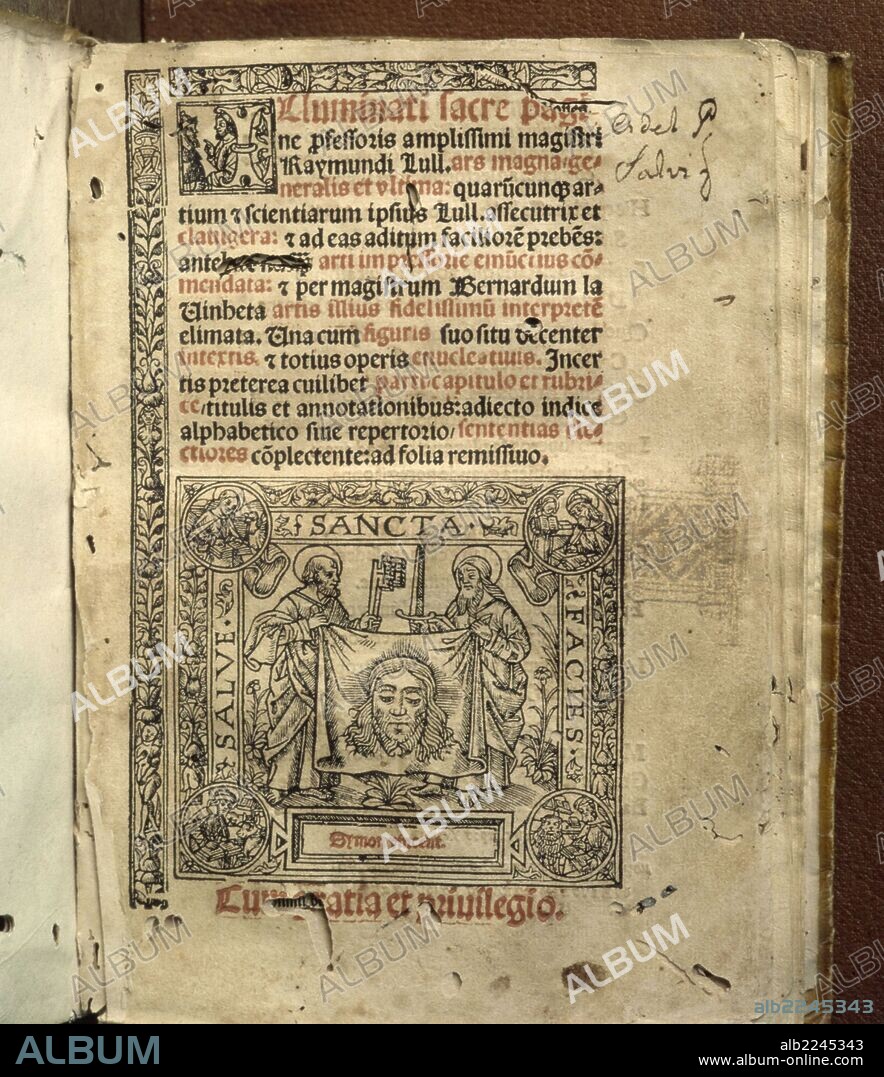 Illuminati sacre pagi
ne ꝓfessoris amplissimi magistri
Raymundi Lull. ars magna: ge⸗
neralis et vltima: quarūcunqꝫ ar⸗
tium ⁊ scientiarum ipsius Lull. assecutrix et
clauigera: ⁊ ad eas aditum faciliorē prebēs:
ante arti im cō⸗
mendata: ⁊ per magistrum Bernardum la
Vinheta artis illius fidelissimū interpretē
elimata. Una cum figuris suo situ decenter
intextis. ⁊ totius operis enucleatiuis. Incer
tis preterea cuilibet parti capitulo et rubri⸗
ce/titulis et annotationibus: adiecto indice
alphabetico siue repertorio/ sententias
ctiores cōplectente: ad folia remissiuo.
SALVE · SANCTA · FACIES ·
Cum gratia et priuilegio.
ALBUM
alb2245343
www.album-online.com